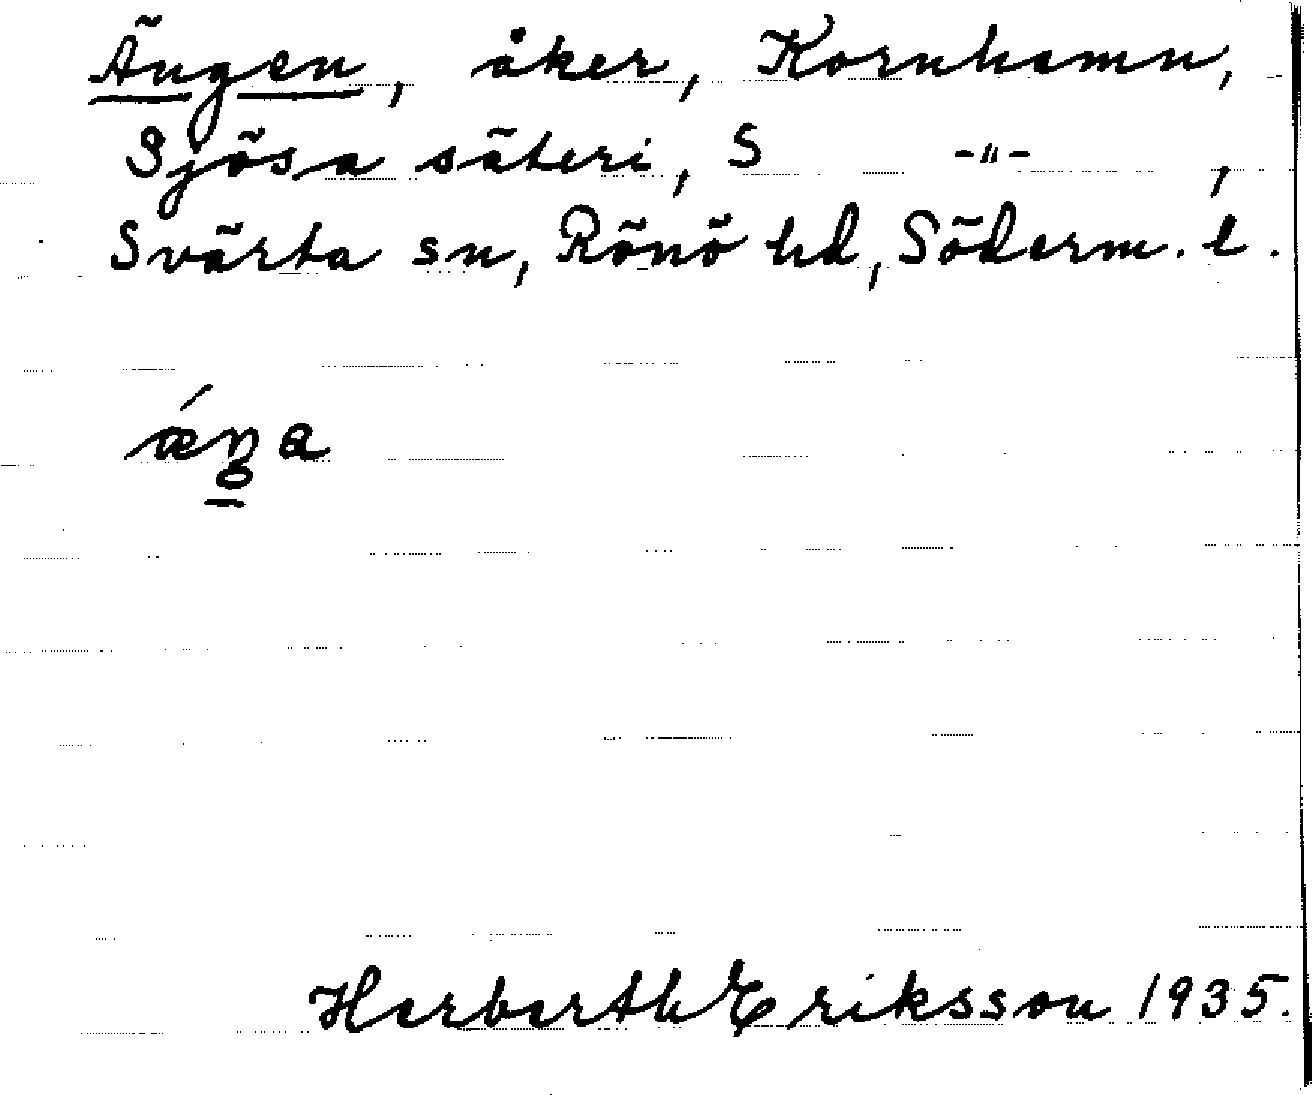 Ängen, åker, Kornhamn,
Sjösa säteri, S -"- ,
Svärta sn, Rönö hd, Söderm. l.
ǽŋ̥a
Herberth Eriksson 1935.